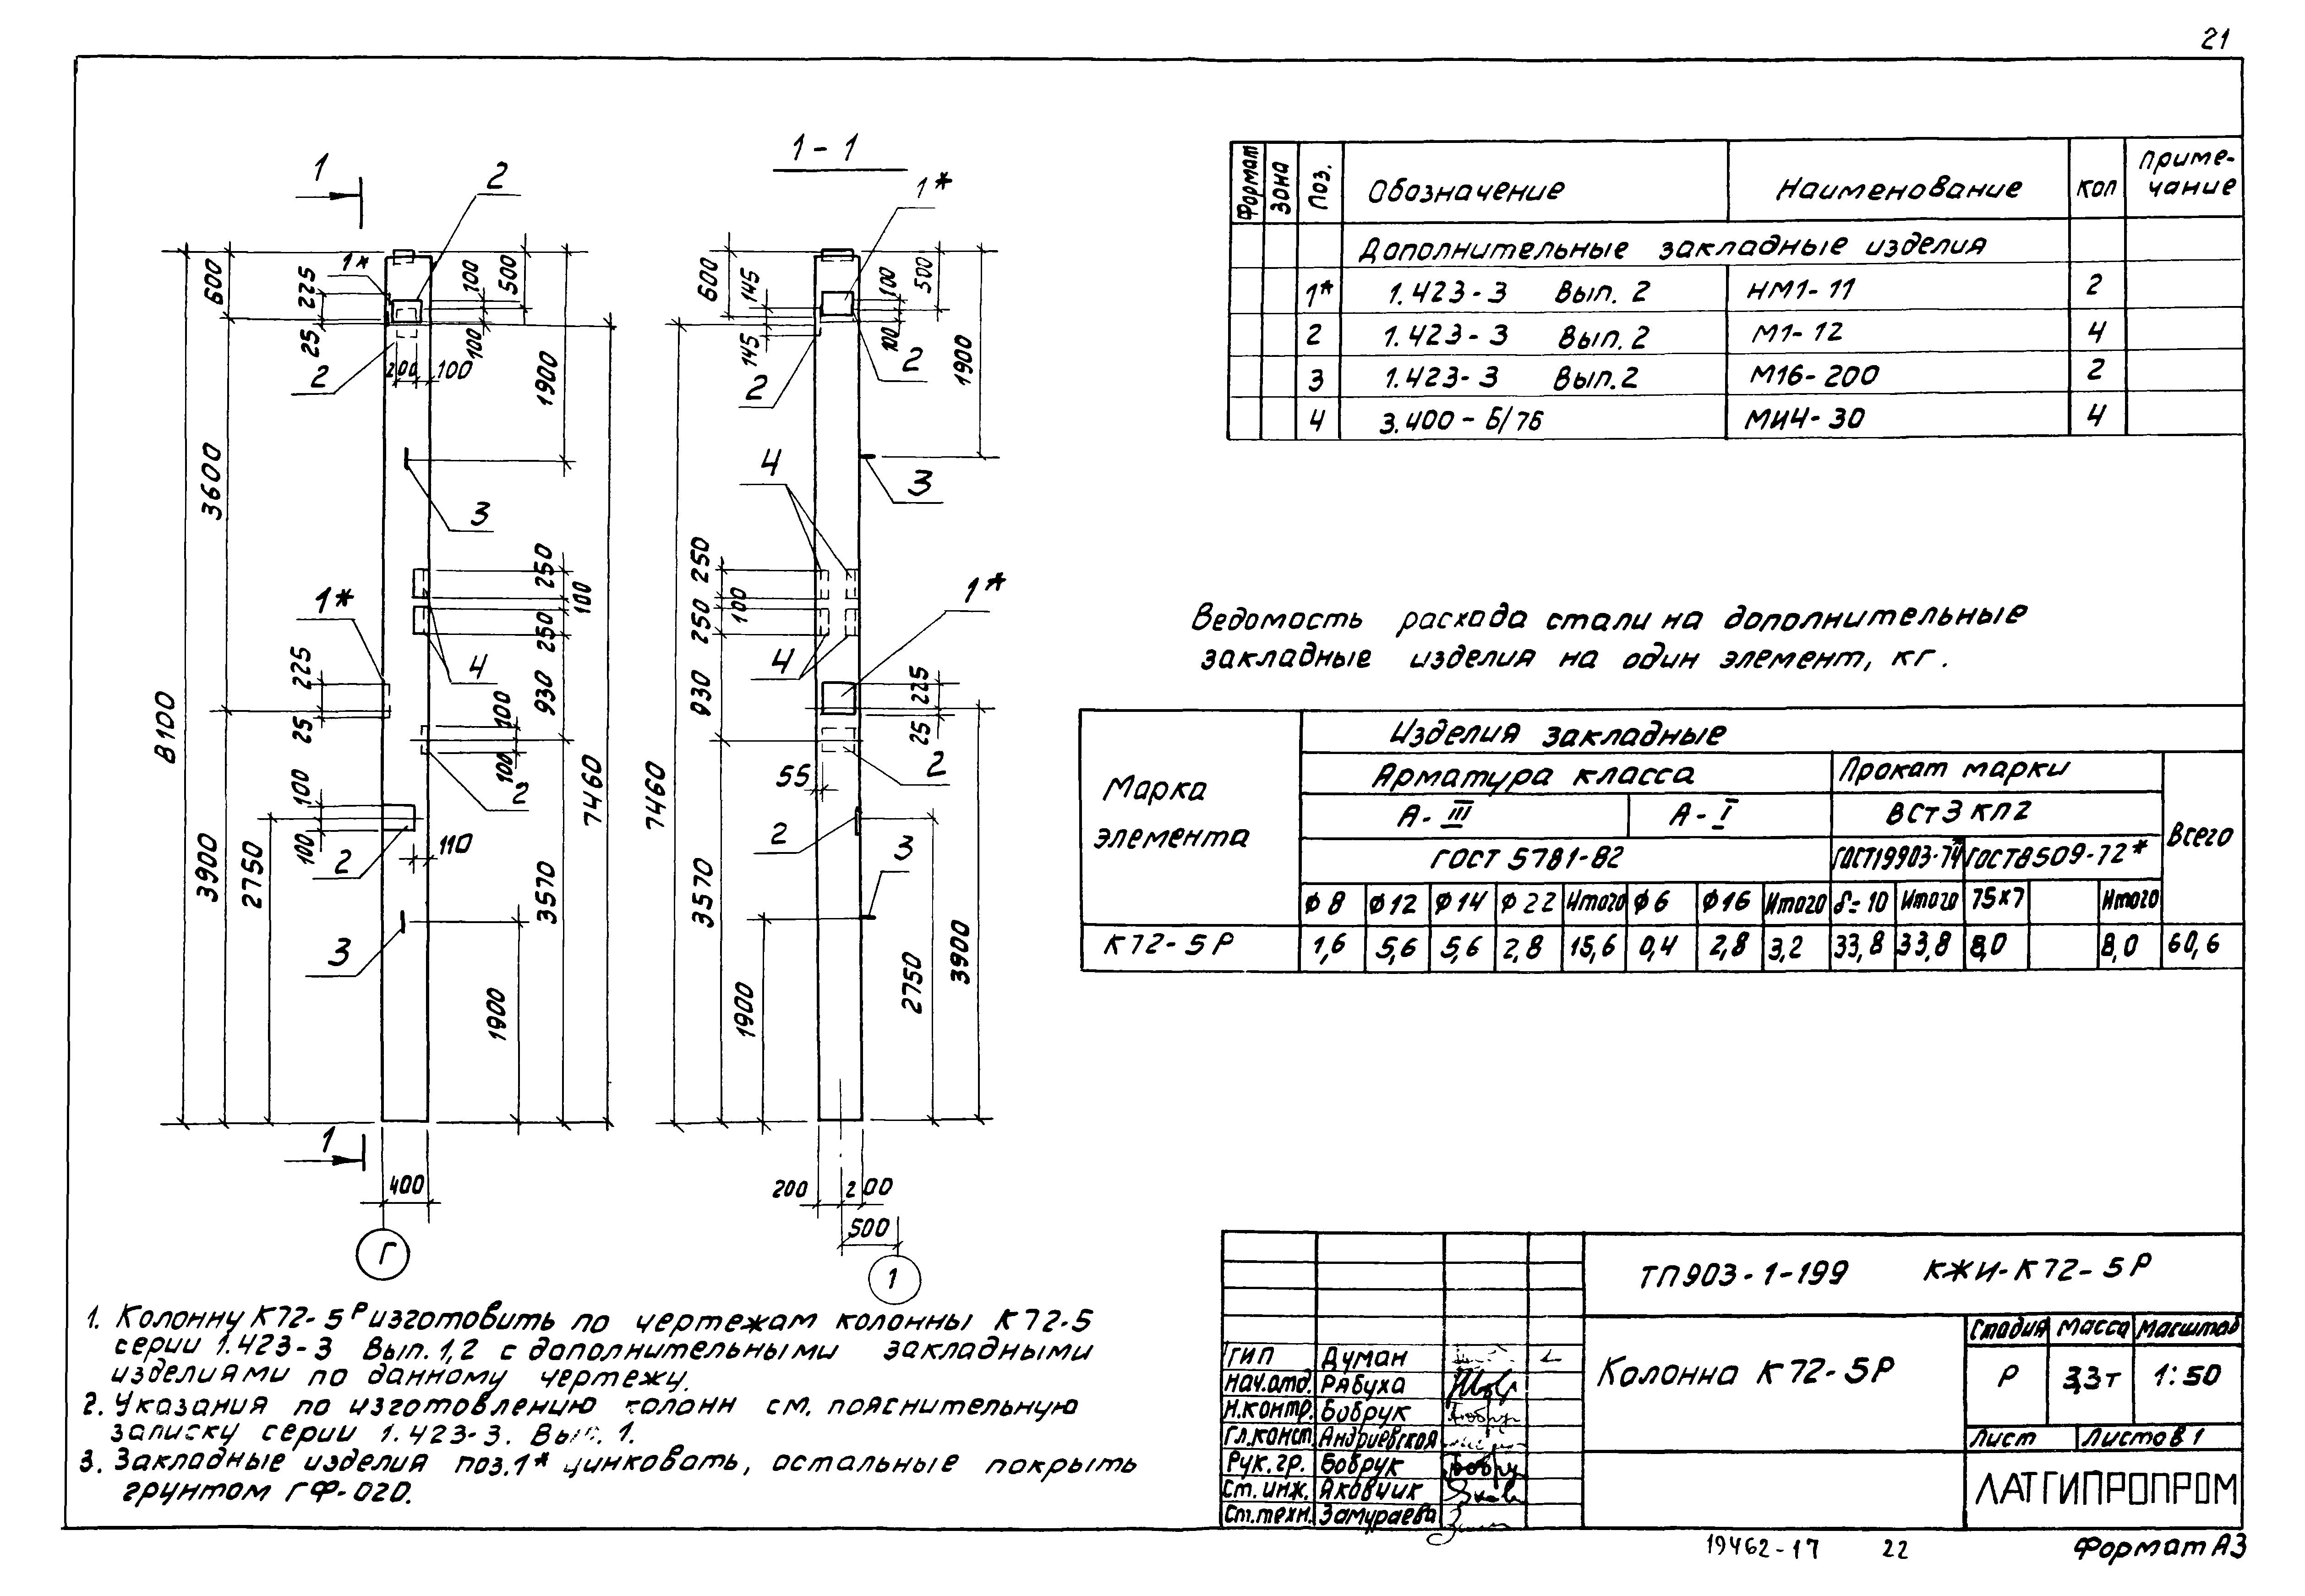 21
1
1-1
2
1*
1*
600
225
25
100
500
100
2
200
100
1900
3600
3
250
100
250
4
1*
225
25
930
100
100
2
8100
3900
2750
100
100
2
110
3
7460
3570
1900
1
400
Г
600
145
145
100
500
100
2
2
1900
4
3
250
100
250
4
1*
930
225
25
2
55
2
3
7460
3570
1900
2750
3900
200
200
500
1
Формат
Зона
Поз.
Обозначение
Наименование
Кол
Приме-
чание
Дополнительные закладные изделия
1* 1.423-3 Вып. 2 НМ1-11 2
2 1.423-3 Вып. 2 М1-12 4
3 1.423-3 Вып. 2 М16-200 2
4 3.400-6/76 МИ4-30 4
Ведомость расхода стали на дополнительные
закладные изделия на один элемент, кг.
Марка
элемента
Изделия закладные
Арматура класса
Прокат марки
А-III
А-I
ВСт3 кп2
Всего
ГОСТ 5781-82
ГОСТ19903-74*
ГОСТ8509-72*
ф8 ф12 ф14 ф22 Итого ф6 ф16 Итого δ=10 Итого 75х7 Итого
К72-5Р 1,6 5,6 5,6 2,8 15,6 0,4 2,8 3,2 33,8 33,8 8,0 8,0 60,6
1. Колонну К72-5Р изготовить по чертежам колонны К72-5
серии 1.423-3 Вып. 1,2 с дополнительными закладными
изделиями по данному чертежу.
2. Указания по изготовлению колонн см. пояснительную
записку серии 1.423-3. Вып. 1.
3. Закладные изделия поз.1* цинковать, остальные покрыть
грунтом ГФ-020.
ТП903-1-199 КЖИ-К72-5Р
Колонна К72-5Р
Стадия Масса Масштаб
Р 3,3т 1:50
Лист Листов 1
ЛАТГИПРОПРОМ
ГИП Думан
Нач.отд. Рябуха
Н.контр. Бобрук
Гл.конст. Андриевская
Рук.гр. Бобрук
Ст.инж. Яковчик
Ст.техн. Замураева
19462-17 22
Формат А3